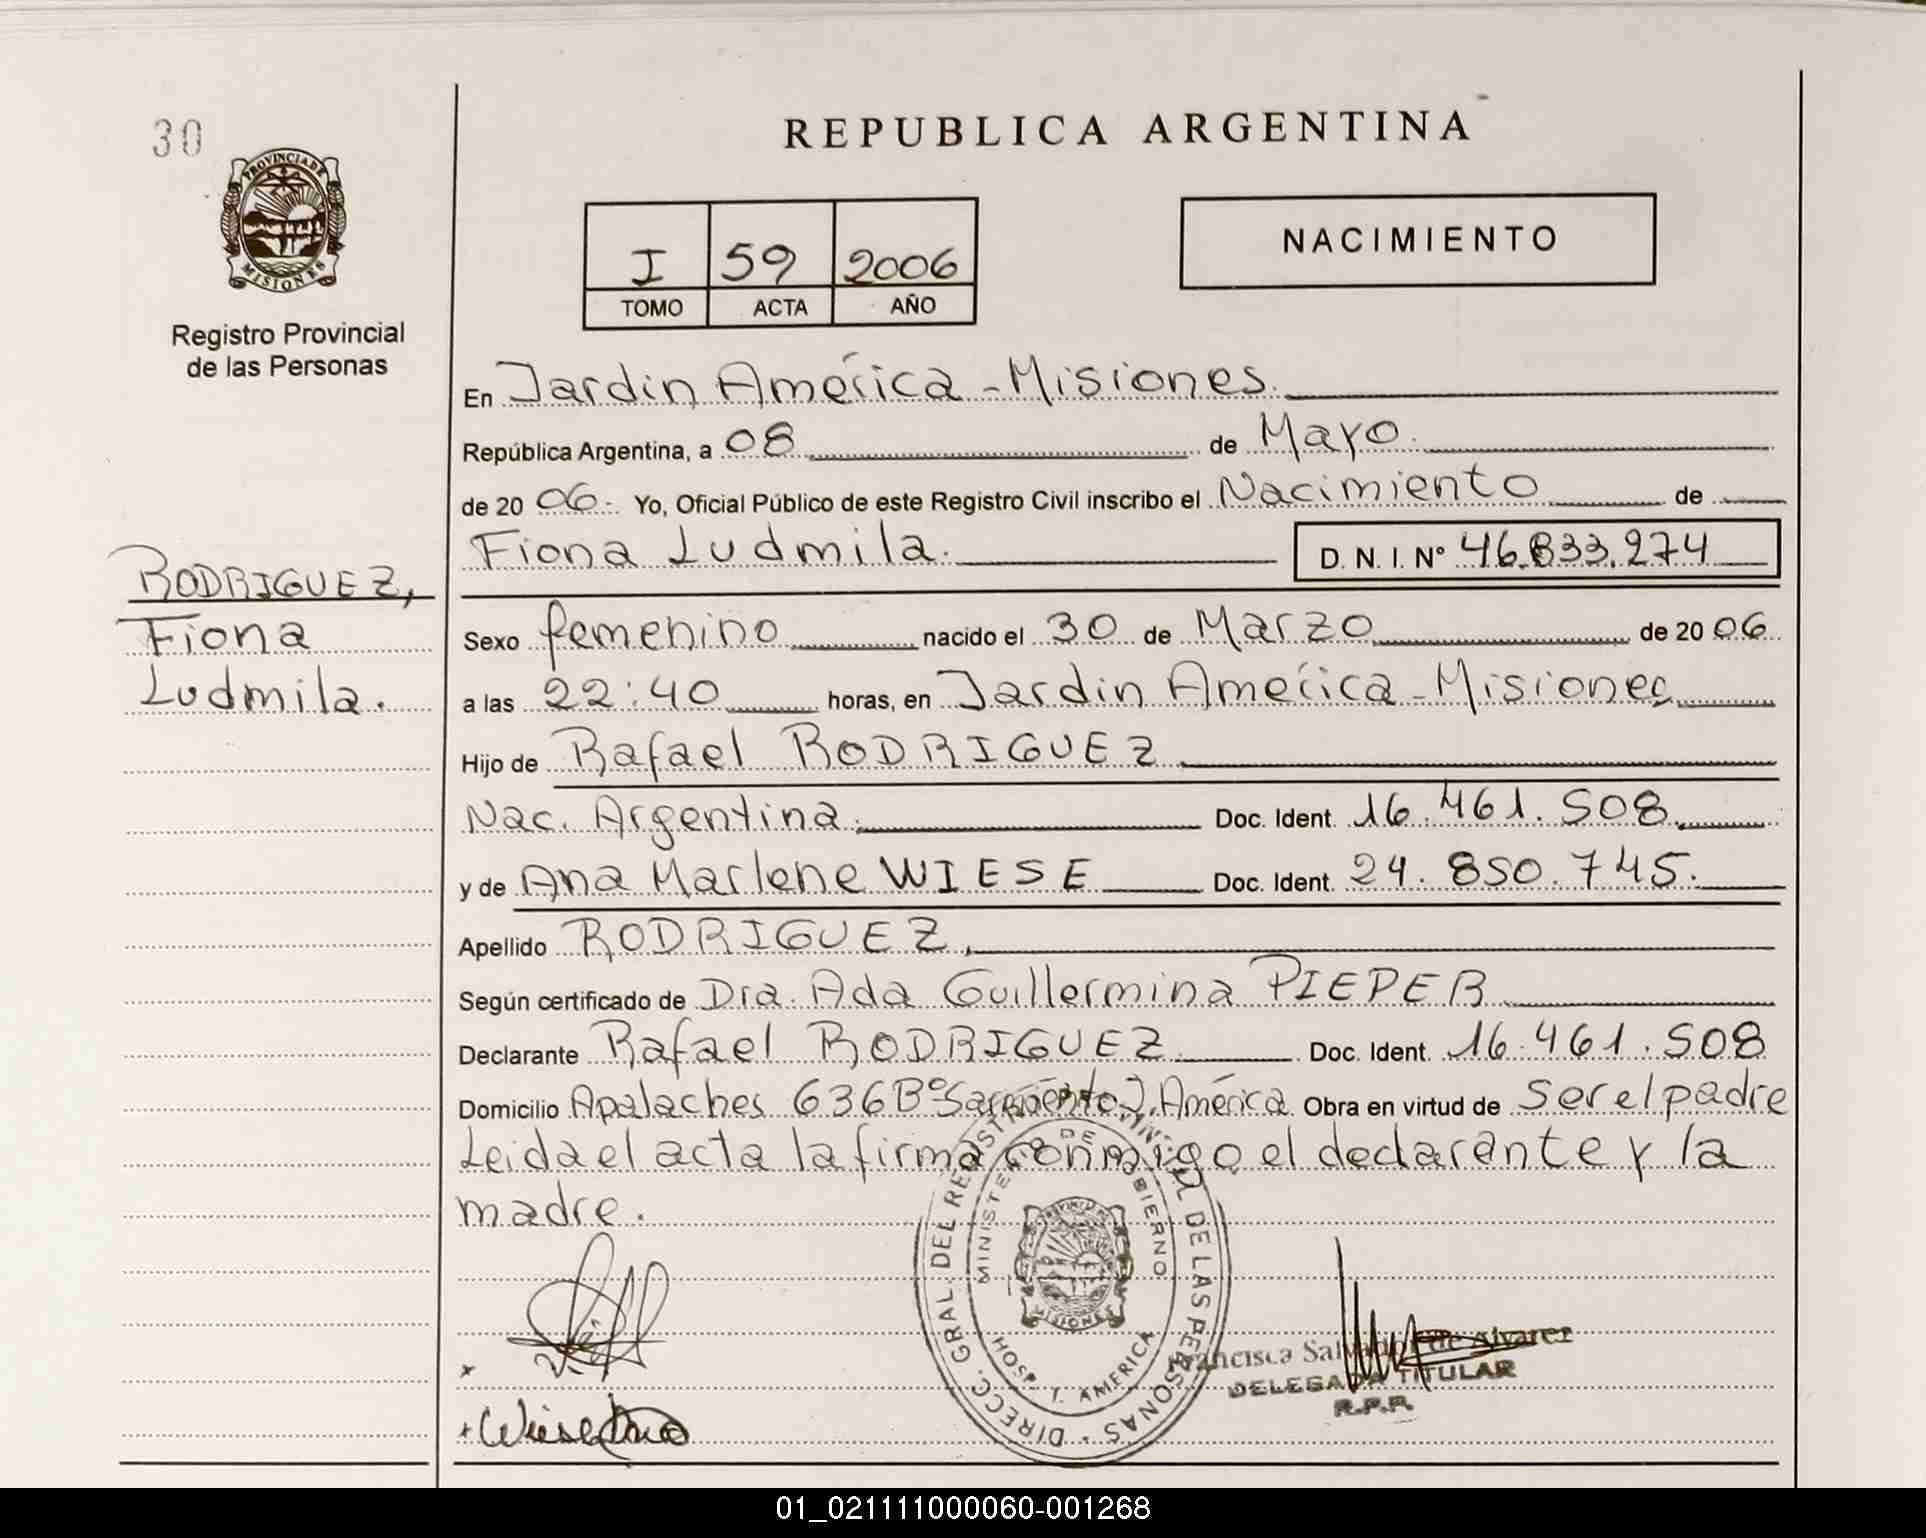 30
PROVINCIA DE
MISIONES
Registro Provincial
de las Personas
RODRIGUEZ,
Fiona
Ludmila.
REPUBLICA ARGENTINA
I 59 2006
TOMO ACTA AÑO
NACIMIENTO
En Jardín América - Misiones.
República Argentina, a 08 de Mayo.
de 20 06.- Yo, Oficial Público de este Registro Civil inscribo el Nacimiento de
Fiona Ludmila. D. N. I. N° 46.833.274
Sexo femenino nacido el 30 de Marzo de 20 06
a las 22:40 horas, en Jardín América - Misiones
Hijo de Rafael RODRIGUEZ
Nac. Argentina. Doc. Ident. 16.461.508
y de Ana Marlene WIESE Doc. Ident. 24.850.745.
Apellido RODRIGUEZ.
Según certificado de Dra. Ada Guillermina PIEPER
Declarante Rafael RODRIGUEZ Doc. Ident. 16.461.508
Domicilio Apalaches 636 B° Sarmiento J. América Obra en virtud de Ser el padre
Leida el acta la firma conmigo el declarante y la
madre.
DIRECC. GRAL. DEL REGISTRO DE LAS PERSONAS
MINISTERIO DE GOBIERNO
MISIONES
HOSP. J. AMERICA
Francisca Salvador de Alvarez
DELEGADA TITULAR
R.P.P.
x
+ Wiese Ana
01_021111000060-001268